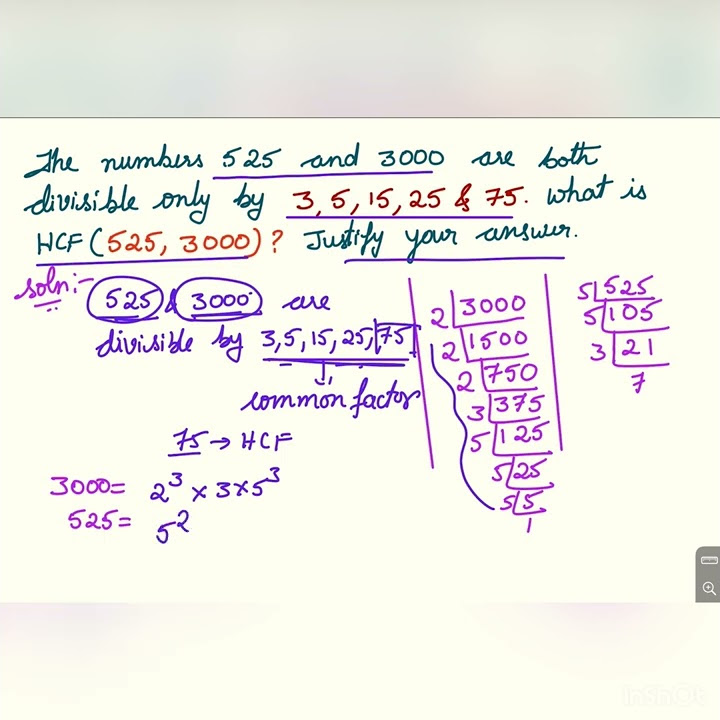 The numbers 525 and 3000 are both
divisible only by 3, 5, 15, 25 & 75. What is
HCF (525, 3000)? Justify your answer.
Soln:-
525 & 3000 are
divisible by 3, 5, 15, 25, 75
common factor
75 → HCF
3000 = 2³ × 3 × 5³
525 = 5²
2 3000
2 1500
2 750
3 375
5 125
5 25
5 5
1
5 525
5 105
3 21
7
InShOt